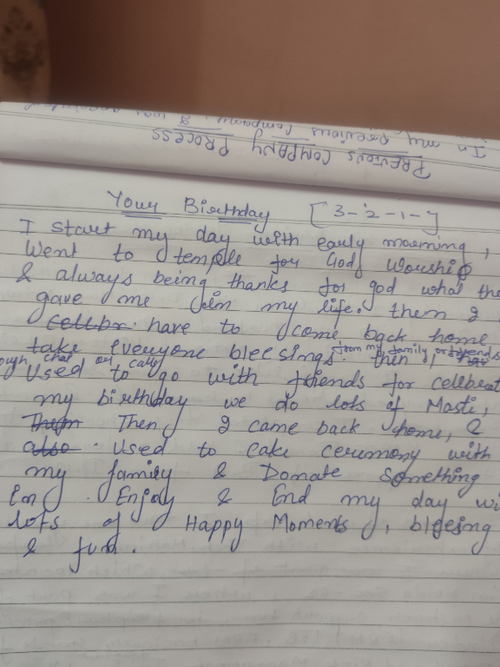 In my previous company, I was
PREVIOUS COMPANY PROCESS
Your Birthday [3-2-1-]
I start my day with early morning,
Went to temple for God Worship
& always being thanks for god what the
gave me in my life. then I
Celebr. have to come back home
take everyone blessings from my family or friends
ough chat or call then I
Used to go with friends for celebrat
my birthday we do lots of Masti,
Them Then I came back home, &
also Used to cake ceremony with
my family & Donate Something
Enjoy & End my day wi
lots of Happy Moments, blessing
& fun.